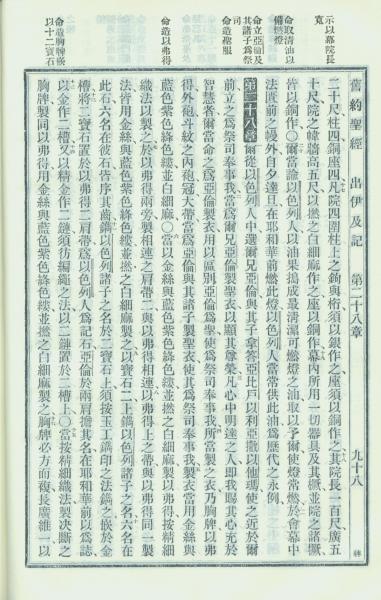 舊約聖經 出伊及記 第二十八章 九十八
示以幕院長寬
命取清油以備燃燈
命立亞倫及其諸子為祭司
命造聖服
命造以弗得
命造胸牌嵌以十二寶石
二十尺柱四銅座四凡院四圍柱上之鉤與桁須以銀作之座須以銅作之其院長一百尺廣五
十尺院之幃牆高五尺以撚之白細麻作之座以銅作幕內所用一切器具及其橛並院之諸橛
皆以銅作○爾當諭以色列人以油果搗成最清潔可燃燈之油取以予爾使燈常燃於會幕中
法匱前之幔外自夕達旦在耶和華前燃此燈以色列人當常供此油為歷代之永例
第二十八章 爾從以色列人中選爾兄亞倫與其子拿答亞比戶以利亞撒以他瑪使之近於爾
前立之為祭司奉事我當為爾兄亞倫製聖衣以顯其尊榮凡心中明達之人即我賜其心充於
智慧者爾當命之為亞倫製衣用以區別亞倫為聖使為祭司奉事我所當製之衣乃胸牌以弗
得外袍斗紋之內袍冠大帶當為亞倫與其諸子製聖衣使其為祭司奉事我製衣當用金絲與
藍色紫色絳色縷並白細麻○當以金絲與藍色紫色絳色縷並撚之白細麻製以弗得按精細
織法以製之於以弗得兩旁製相連之肩帶二與以弗得相連以弗得上之帶與以弗得同一製
法皆用金絲與藍色紫色絳色縷並撚之白細麻製之以寶石二上鐫以色列諸子之名六名在
此石六名在彼石皆序其齒鐫以色列諸子之名於二寶石上須按玉工鐫印之法鐫之嵌於金
槽將二寶石置於以弗得二肩帶為以色列人為記石亞倫於兩肩擔其名在耶和華前以為誌
以金作二槽又以精金作二鏈須彷編繩之法以二鏈置於二槽上○當按精細織法製决斷之
胸牌製同以弗得用金絲與藍色紫色絳色縷並撚之白細麻製之胸牌必方而複長廣維一以